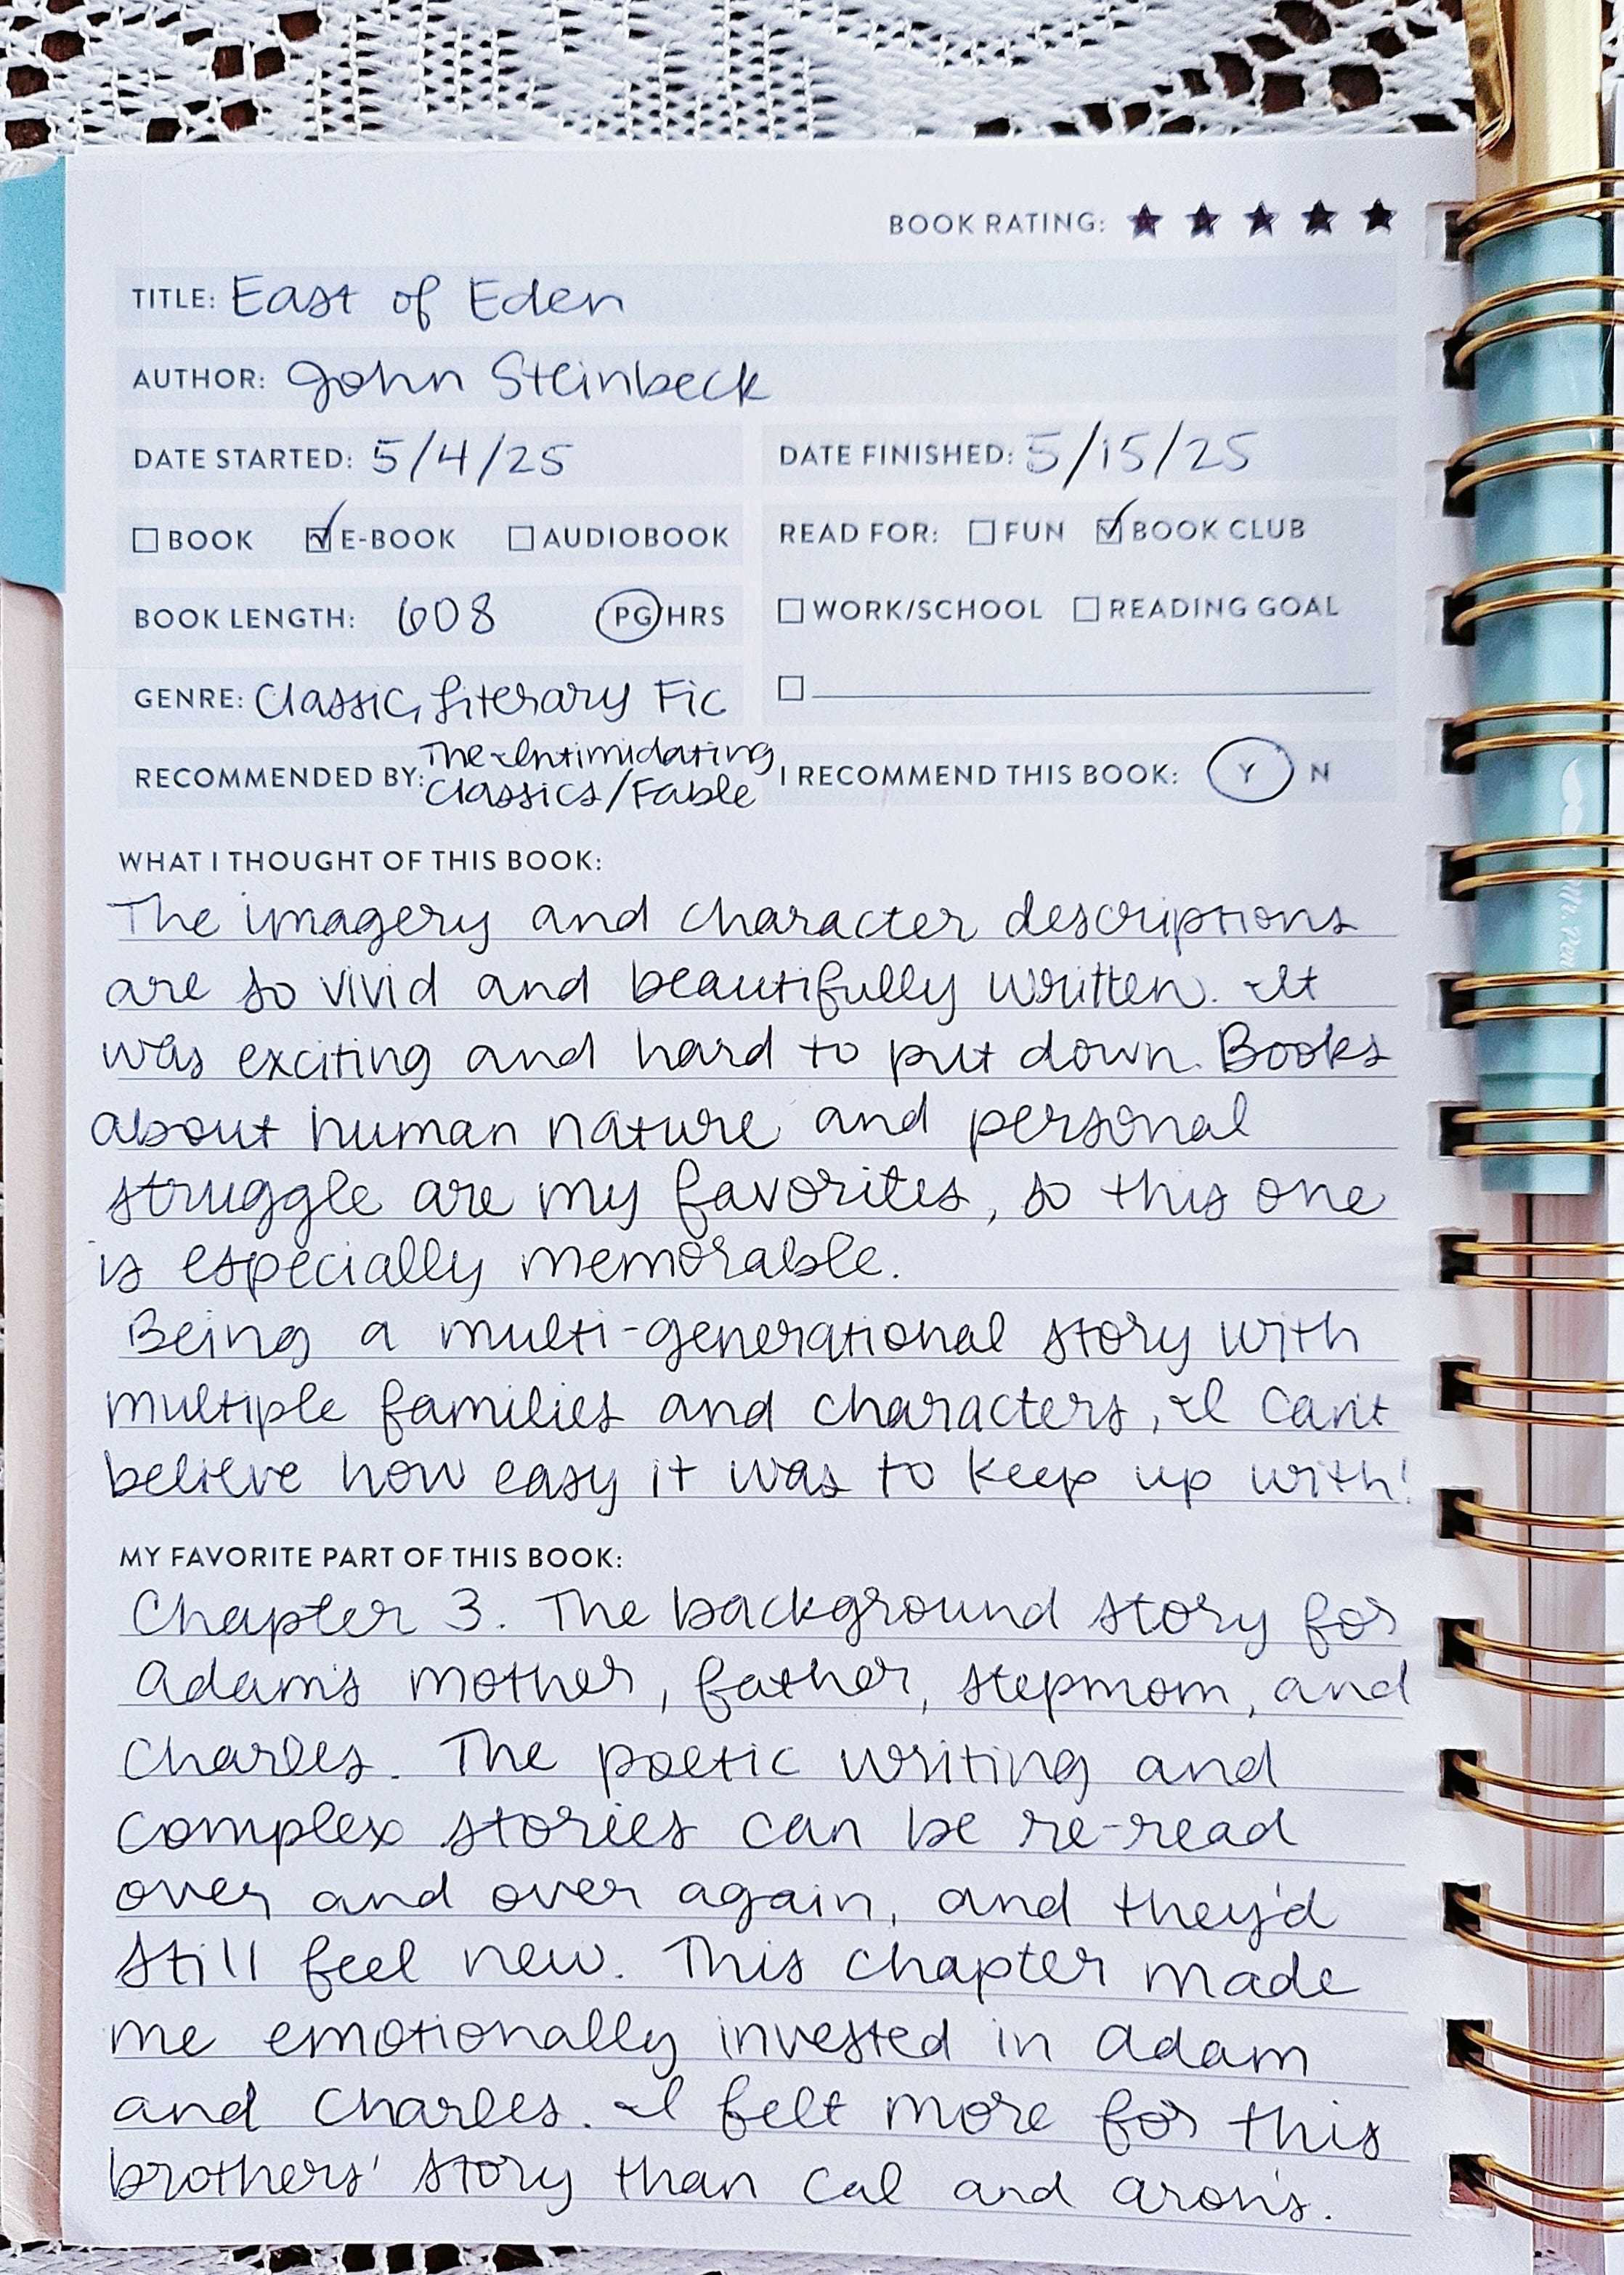 BOOK RATING: ★ ★ ★ ★ ★
TITLE: East of Eden
AUTHOR: John Steinbeck
DATE STARTED: 5/4/25 DATE FINISHED: 5/15/25
☐ BOOK ☑ E-BOOK ☐ AUDIOBOOK READ FOR: ☐ FUN ☑ BOOK CLUB
BOOK LENGTH: 608 PG/HRS ☐ WORK/SCHOOL ☐ READING GOAL
GENRE: Classic, Literary Fic ☐
RECOMMENDED BY: The Intimidating
Classics/Fable I RECOMMEND THIS BOOK: Y N
WHAT I THOUGHT OF THIS BOOK:
The imagery and character descriptions
are so vivid and beautifully written. It
was exciting and hard to put down. Books
about human nature and personal
struggle are my favorites, so this one
is especially memorable.
Being a multi-generational story with
multiple families and characters, I can't
believe how easy it was to keep up with!
MY FAVORITE PART OF THIS BOOK:
Chapter 3. The background story for
Adam's mother, father, stepmom, and
Charles. The poetic writing and
complex stories can be re-read
over and over again, and they'd
still feel new. This chapter made
me emotionally invested in Adam
and Charles. I felt more for this
brothers' story than Cal and Aron's.